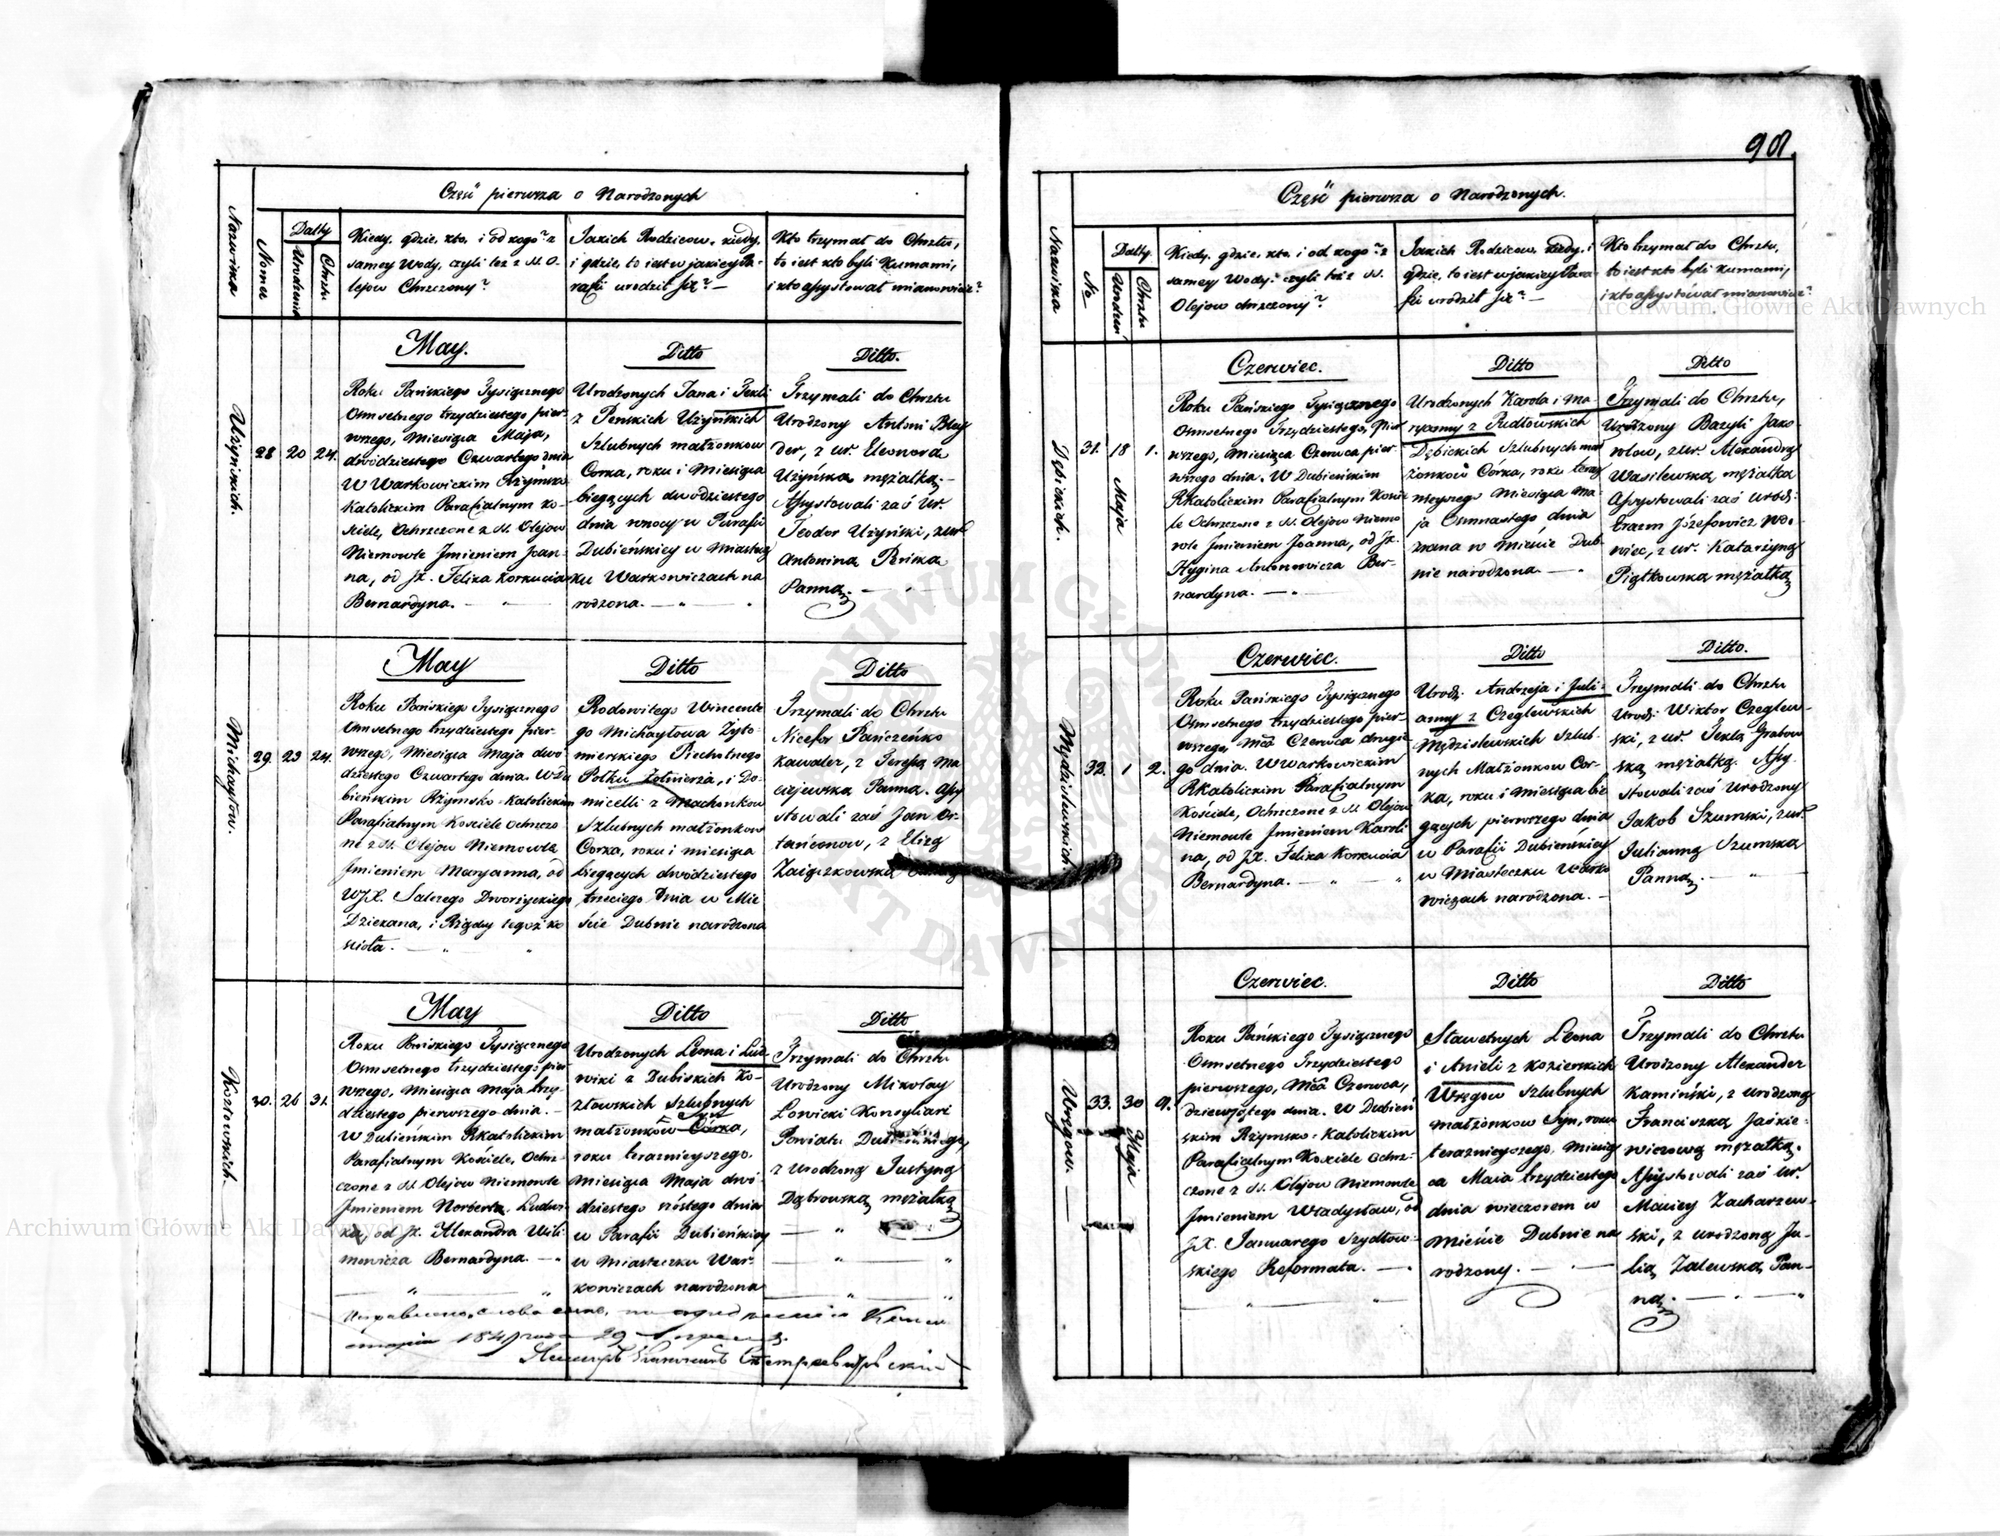 98.
Część pierwsza o Narodzonych
Nazwiska
Nomer
Datty
Urodzenia
Chrztu
Kiedy, gdzie, kto, i od kogo? z
samey Wody, czyli też z SS. O-
lejow Chrzczony?
Jakich Rodzicow, kiedy,
i gdzie, to iest w jakiey Pa-
rafii urodził się? —
Kto trzymał do Chrztu,
to iest kto byli Kumami,
i kto assystował mianowicie?
Użyńskich.
28
20
24.
May.
Roku Pańskiego Tysiącznego
Osmsetnego trzydziestego pier-
wszego, Miesiąca Maja,
dwódziestego Czwartego dnia
W Warkowickim Rżymsko
Katolickim Parafialnym Ko-
ściele, Ochrzczone z SS. Olejow
Niemowle Imieniem Joan-
na, od JX. Felixa Korkucia
Bernardyna. —
Ditto
Urodzonych Jana i Tekli
z Peńskich Użyńskich
Szlubnych małżonkow
Corka, roku i Miesiąca
biegących dwódziestego
dnia w nocy w Parafii
Dubieńskiey w Miastecz
ku Warkowiczach na
rodzona. —
Ditto.
Trzymali do Chrztu
Urodzony Antoni Bley
der, z ur. Eleonorą
Użyńską mężatką. —
Assystowali zaś Ur.
Teodor Użyński, z ur.
Antoniną Peńską
Panną. —
Michayłow.
29.
23
24.
May
Roku Pańskiego Tysiącznego
Osmsetnego trzydziestego pier-
wszego, Miesiąca Maja dwó
dziestego Czwartego dnia. W Du
bieńskim Rżymsko-Katolickim
Parafialnym Kościele Ochrzczo
ne z SS. Olejow Niemowle
Imieniem Maryanna, od
WJX. Salezego Dworżyckiego
Dziekana, i Rządcy tegoż ko
ścioła. —
Ditto
Rodowitego Wincente
go Michayłowa Żyto-
mierskiego Piechotnego
Połku Żołnierza, i Do-
micelli z Machonkow
Szlubnych małżonkow
Corka, roku i miesiąca
biegących dwódziestego
trzeciego Dnia w Mie
ście Dubnie narodzona
Ditto
Trzymali do Chrztu
Nicefor Pańczeńko
Kawaler, z Teressą Ma
ciejewską Panną. Assy
stowali zaś Jan Or-
tańconow, z Elizą
Zaiączkowską
Kozłowskich.
30.
26
31.
May
Roku Pańskiego Tysiącznego
Osmsetnego trzydziestego pier
wszego, Miesiąca Maja trzy-
dziestego pierwszego dnia. —
W Dubieńskim RKatolickim
Parafialnym Kościele, Ochrz-
czone z SS. Olejow Niemowle
Imieniem Norberta, Ludwi
ka, od JX. Alexandra Wili
mowicza Bernardyna. —
Ditto
Urodzonych Leona i Lud
wiki z Dubiskich Ko-
złowskich Szlubnych
Syn
małżonków Córka,
roku teraznieyszego,
miesiąca Maja dwó
dziestego szóstego dnia
w Parafii Dubieńskiey
w Miasteczku War-
kowiczach narodzona
Ditto
Trzymali do Chrztu
Urodzony Mikołay
Łowicki Konsyliarż
Powiatu
z Urodzoną Justyną
Dąbrowską mężatką
1849 29
Część pierwsza o Narodzonych.
Nazwiska
No
Datty.
Urodzeń
Chrztu
Kiedy, gdzie, kto, i od kogo? z
samey Wody? czyli też z SS.
Olejow chrzczony?
Jakich Rodzicow, kiedy, i
gdzie, to iest w jakiey Para-
fii urodził się? —
Kto trzymał do Chrztu,
to iest kto byli kumami,
i kto assystował mianowicie?
Dębickich.
31.
18 Maja
1.
Czerwiec.
Roku Pańskiego Tysiącznego
Osmsetnego Trzydziestego, Pier
wszego, Miesiąca Czerwca pier
wszego dnia. W Dubieńskim
RKatolickim Parafialnym Kości
le Ochrzczone z SS. Olejow Niemo
wle Imieniem Joanna, od JX.
Hygina Antonowicza Ber-
nardyna. —
Ditto
Urodzonych Karola i Ma-
ryanny z Pudłowskich
Dębickich Szlubnych mał
żonków Córka, roku teraz
nieyszego Miesiąca Ma-
ja Osmnastego dnia
zrana w Mieście Dub-
nie narodzona —
Ditto
Trzymali do Chrztu,
Urodzony Bazyli Jako-
wlow, z ur. Alexandrą
Wasilewską mężatką
Assystowali zaś Urodz:
Erazm Józefowicz Wdo-
wiec, z ur. Katarzyną
Piątkowską mężatką
Mędzislewskich
32.
1
2.
Czerwiec.
Roku Pańskiego Tysiącznego
Osmsetnego trzydziestego pier-
wszego, Mca Czerwca drugie
go dnia. W Warkowickim
RKatolickim Parafialnym
Kościele, Ochrzczone z SS. Olejow
Niemowle Imieniem Karoli
na, od JX. Felixa Korkucia
Bernardyna. —
Ditto
Urodz. Andrzeja i Juli-
anny z Czeglewskich
Mędzislewskich Szlub-
nych Małżonkow Cor-
ka, roku i Miesiąca bie
gących pierwszego dnia
w Parafii Dubieńskiey
w Miasteczku Warko
wiczach narodzona. —
Ditto.
Trzymali do Chrztu
Urodz: Wiktor Czeglew-
ski, z ur. Teklą Grabow
ską mężatką. Assy-
stowali zaś Urodzony
Jakob Szumski, z ur.
Julianną Szumską
Panną. —
Wrzgow.
33.
30 Maja
9.
Czerwiec.
Roku Pańskiego Tysiącznego
Osmsetnego Trzydziestego
pierwszego, Mca Czerwca,
dziewjątego dnia. W Dubień
skim Rżymsko-Katolickim
Parafialnym Kościele Ochrz-
czone z SS. Olejow Niemowle
Imieniem Władysław, od
JX. Januarego Szydłow-
skiego Reformata. —
Ditto
Sławetnych Leona
i Anieli z Kozierskich
Wrzgow Szlubnych
małżonkow Syn, roku
teraznieyszego, Miesią
ca Maia trzydziestego
dnia wieczorem w
Mieście Dubnie na
rodzony. —
Ditto
Trzymali do Chrztu
Urodzony Alexander
Kamiński, z Urodzoną
Franciszką Jaśkie-
wiczową mężatką.
Assystowali zaś Ur.
Maciey Zacharzew-
ski, z urodzoną Ju-
lią Zalewską Pan-
ną. —
Archiwum Główne Akt Dawnych
Archiwum Główne Akt Dawnych
ARCHIWUM GŁÓWNE AKT DAWNYCH